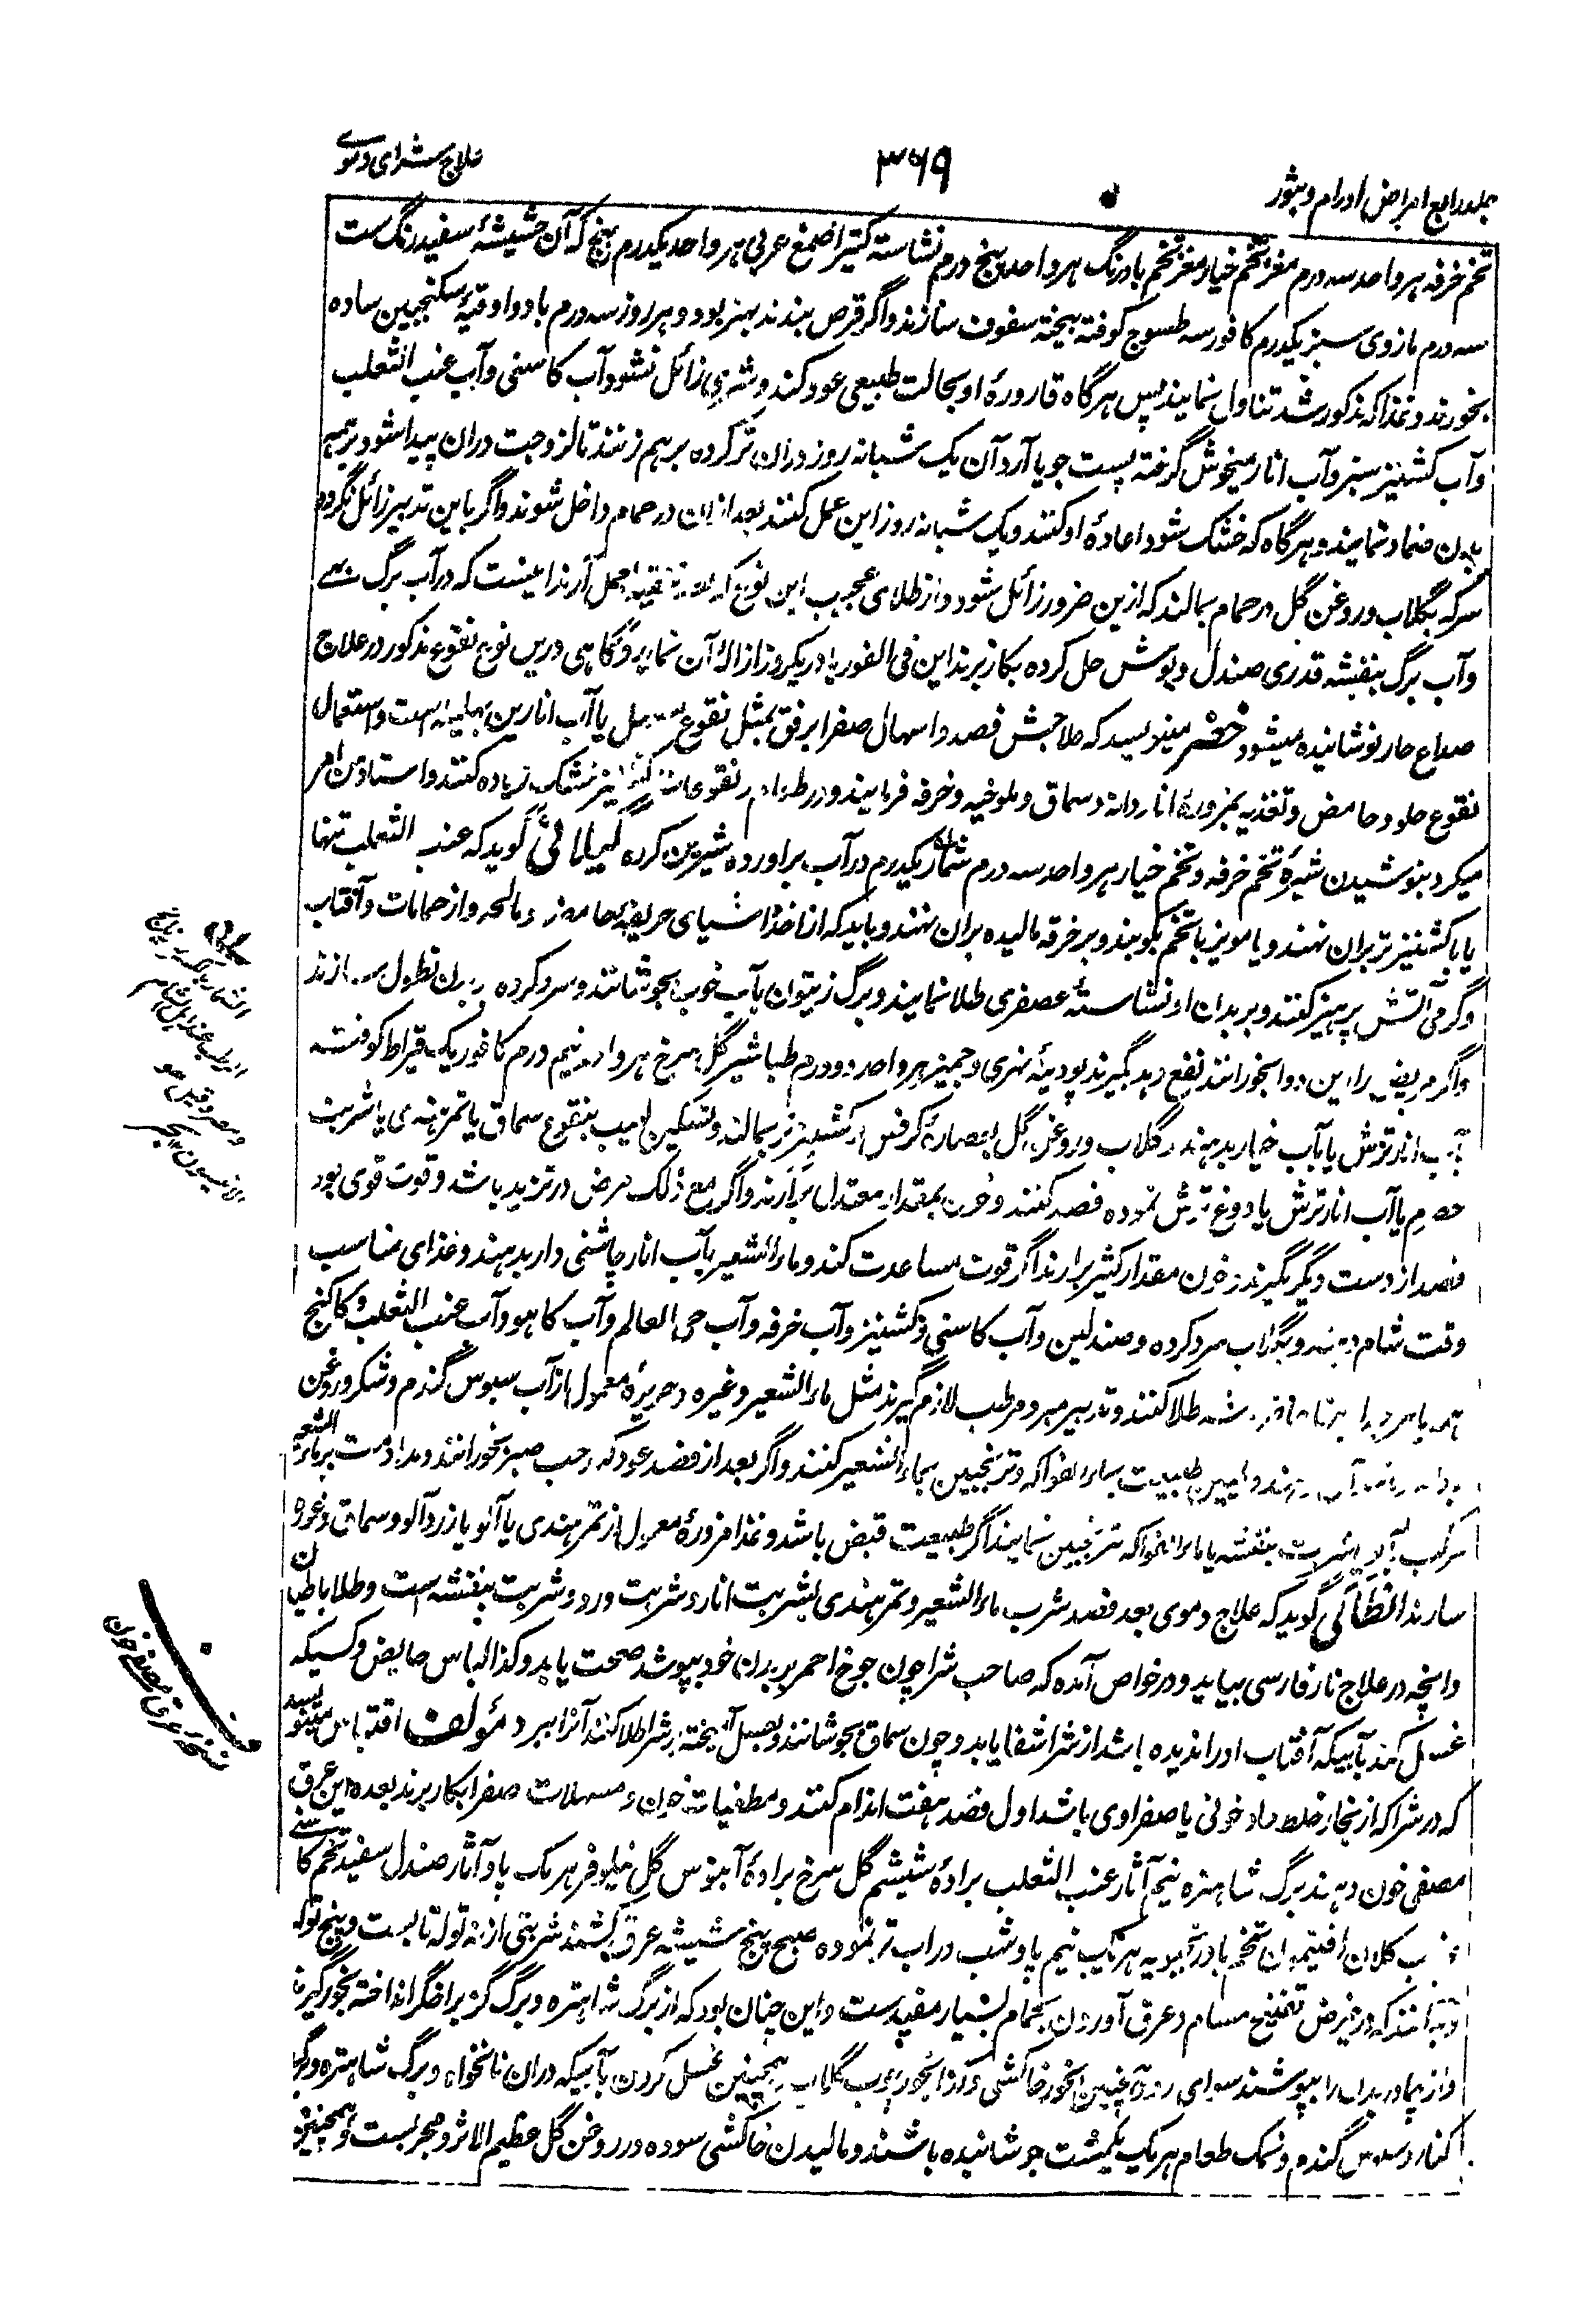 جلد رابع امراض اورام و بثور
۳۶۹
علاج شرای دموی
تخم خرفه هر واحد سه درم مغز تخم خیار مغز تخم بادرنگ هر واحد پنج درم نشاسته کتیرا صمغ عربی هر واحد یکدرم بنج که آن حشیشهٔ سفید رنگ ست
سه درم مازوی سبز یکدرم کافور سه طسوج کوفته بیخته سفوف سازند و اگر قرص بندند بهتر بود و هر روز سه درم با دو اوقیهٔ سکنجبین ساده
بخورند و غذا که مذکور شد تناول نمایند پس هرگاه قارورهٔ او بحالت طبیعی عود کند و شری زائل نشود آب کاسنی و آب عنب الثعلب
و آب کشنیز سبز و آب انار میخوش گرفته پست جو یا آرد آن یک شبانه روز دران تر کرده برهم زنند تا لزوجت دران پیدا شود بر همه
بدن ضماد نمایند و هرگاه که خشک شود اعادهٔ او کنند و یک شبانه روز این عمل کنند بعد ازان در حمام داخل شوند و اگر باین تدبیر زائل نگردد
سرکه بگلاب و روغن گل در حمام بمالند که ازین ضرور زائل شود و از طلای عجیب این نوع که بعد تنقیه بعمل آرند اینست که در آب برگ
و آب برگ بنفشه قدری صندل و بوش حل کرده بکار برند این فی الفور یا در یکروز ازالهٔ آن نماید و گاهی درین نوع نقوع مذکور در علاج
صداع حار نوشانیده میشود خضر مینویسد که علاجش فصد و اسهال صفرا برفق بمثل نقوع یا آب انارین بهلیله است و استعمال
نقوع حلو و حامض و تغذیه بمزورهٔ انار دانه و سماق و ملوخیه و خرفه فرمایند و در نقوعات کشنیز خشک زیاده کنند و استاد من امر
میکرد بنوشیدن شیرهٔ تخم خرفه و تخم خیار هر واحد سه درم یکدرم در آب برآورده شیرین کرده گیلانی گوید که عنب الثعلب تنها
یا با کشنیز تر بران نهند و یا مویز با تخم بکوبند و بر خرقه مالیده بران نهند و باید که از اخذ اشیای حریفه حامضه و مالحه و از حمامات و آفتاب
و گرمی آتش پرهیز کنند و بر بدن او نشاستهٔ عصفری طلا نمایند و برگ زیتون بآب خوب بجوشانند و سرد کرده بر بدن نطول سازند
و اگر مریض را این دوا بخورانند نفع دهد بگیرند پودینهٔ نهری و جمیز هر واحد دو درم طباشیر گل سرخ هر واحد نیم درم کافور یک قیراط کوفته
بآب انار ترش یا بآب خیار بدهند و گلاب و روغن گل بعصارهٔ کرفس و کشنیز تر بمالند و تسکین لهیب بنقوع سماق یا تمر هندی یا شربت
حصرم یا آب انار ترش یا دوغ ترش نموده فصد کنند و خون بمقدار معتدل برآرند و اگر مع ذلک مرض در تزید باشد و قوت قوی بود
فصد از دست دیگر گیرند و خون مقدار کثیر برآرند اگر قوت مساعدت کند و ماء الشعیر بآب انار چاشنی دار بدهند و غذای مناسب
وقت شام دهند و بگلاب سرد کرده و صندلین و آب کاسنی و کشنیز و آب خرفه و آب حی العالم و آب کاهو و آب عنب الثعلب و کاکنج
طلا کنند و تدبیر مبرد و مرطب لازم گیرند مثل ماء الشعیر و غیره و حریرهٔ معمول از آب سبوس گندم و شکر و روغن
و تلیین طبیعت بماء الفواکه و ترنجبین بماء الشعیر کنند و اگر بعد از فصد عود کند حب صبر بخورانند و مداومت بر ماء الشعیر
مرکب بآلو و شربت بنفشه یا ماء الفواکه ترنجبین نمایند اگر طبیعت قبض باشد و غذا مزورهٔ معمول از تمر هندی یا آلو یا زرد آلو و سماق و غوره
سازند انطاکی گوید که علاج دموی بعد فصد شرب ماء الشعیر و تمر هندی بشربت انار و شربت ورد و شربت بنفشه است و طلا باطیان
و آنچه در علاج نار فارسی بیاید و در خواص آمده که صاحب شرا چون جوخ احمر بر بدن خود بپوشد صحت یابد و کذا لباس حایض و کسیکه
غسل کند بآبیکه آفتاب او را ندیده باشد از شرا شفا یابد و چون سماق بجوشانند و بعسل آمیخته بر شرا طلا کنند آنرا ببرد مؤلف اقتباس مینویسد
که در شرا که از بخار خلط حاد خونی یا صفراوی باشد اول فصد هفت اندام کنند و مطفیات خون و مسهلات صفرا بکار برند بعده این عرق
مصفی خون دهند برگ شاهتره نیم آثار عنب الثعلب برادهٔ شیشم گل سرخ برادهٔ آبنوس گل نیلوفر هر یک پاو آثار صندل سفید تخم کاسنی
کلان افتیمون تخم بادرنجبویه هر یک نیم پاو شب در آب تر نموده صبح پنج شیشه عرق کشند شربتی از نه توله تا بست و پنج توله
و بدانند که درین مرض تفتیح مسام و عرق آوردن بحمام بسیار مفید ست و این چنان بود که از برگ شاهتره و برگ گز بر اخگر انداخته بخور گیرند
و از چادر بدن را بپوشند و همچنین بخور خاکشی و بخور گلاب و همچنین غسل کردن بآبیکه دران نانخواه و برگ شاهتره و برگ
کنار و سبوس گندم و نمک طعام هر یک یکمشت جوشانیده باشند و مالیدن خاکشی سوده در روغن گل عظیم الاثر و مجرب ست و همچنین
نسخهٔ عرق مصفی خون